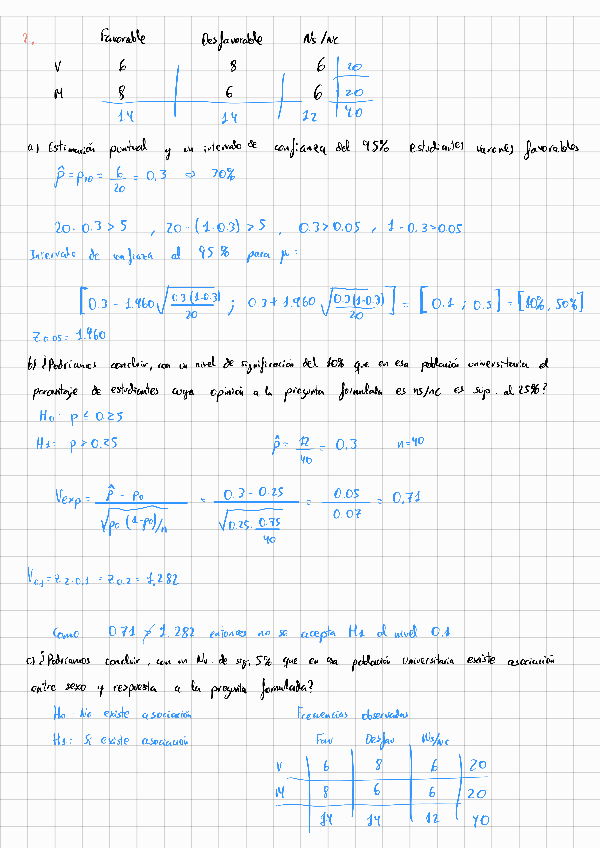 2. Favorable Desfavorable Ns/Nc
V 6 8 6 20
M 8 6 6 20
14 14 12 40
a) Estimación puntual y un intervalo de confianza del 95% estudiantes varones favorables
p̂ = p10 = 6/20 = 0.3 ⇒ 30%
20·0.3 > 5 , 20·(1-0.3) > 5 , 0.3 > 0.05 , 1-0.3 > 0.05
Intervalo de confianza al 95% para μ:
[0.3 - 1.960 √(0.3(1-0.3)/20) ; 0.3 + 1.960 √(0.3(1-0.3)/20)] = [0.1 ; 0.5] = [10%, 50%]
z0.05 = 1.960
b) ¿Podríamos concluir, con un nivel de significación del 10% que en esa población universitaria el
porcentaje de estudiantes cuya opinión a la pregunta formulada es ns/nc es sup. al 25%?
H0: p ≤ 0.25
H1: p > 0.25 p̂ = 12/40 = 0.3 n=40
Vexp = (p̂ - p0)/√(p0(1-p0)/n) = (0.3 - 0.25)/√(0.25·0.75/40) = 0.05/0.07 = 0.71
V0.1 = z2·0.1 = z0.2 = 1.282
Como 0.71 ≯ 1.282 entonces no se acepta H1 al nivel 0.1
c) ¿Podríamos concluir, con un Nv. de sig. 5% que en esa población universitaria existe asociación
entre sexo y respuesta a la pregunta formulada?
H0 No existe asociación Frecuencias observadas
H1: Si existe asociación Fav Desfav Ns/Nc
V 6 8 6 20
M 8 6 6 20
14 14 12 40